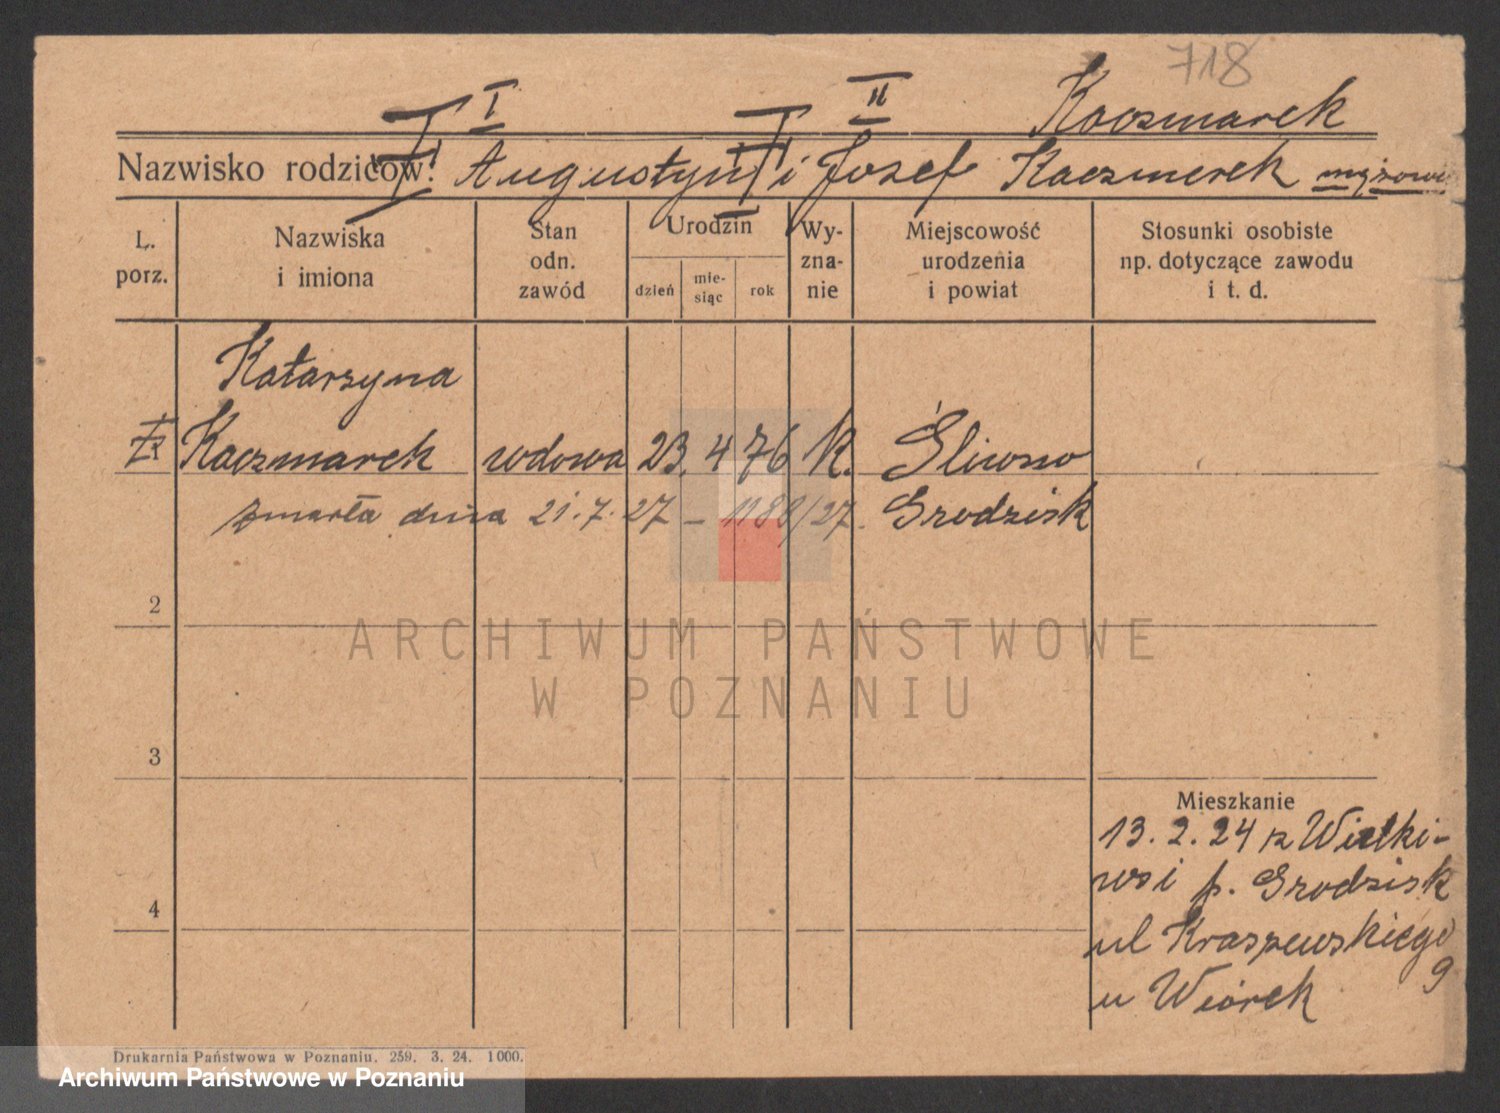 718
I II Kaczmarek
Nazwisko rodziców: Augustyn i Josef Kaczmerek mężowie
L. porz.
Nazwiska i imiona
Stan odn. zawód
Urodzin
dzień
mie-
siąc
rok
Wy-
zna-
nie
Miejscowość
urodzenia
i powiat
Stosunki osobiste
np. dotyczące zawodu
i t. d.
Katarzyna
Kaczmarek wdowa 23. 4 76 K. Śliwno
zmarła dnia 21.7.27 – 1188/27. Grodzisk
2
3
4
Mieszkanie
13. 2. 24 z Wielki-
wsi p. Grodzisk
ul Kraszewskiego
9
u Wiórek
Drukarnia Państwowa w Poznaniu. 259. 3. 24. 1000.
ARCHIWUM PAŃSTWOWE
W POZNANIU
Archiwum Państwowe w Poznaniu